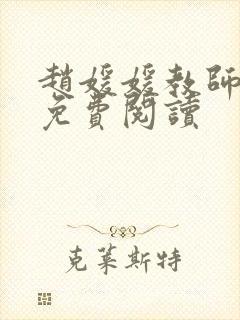 趙媛媛教師
免費閱讀
克萊斯特